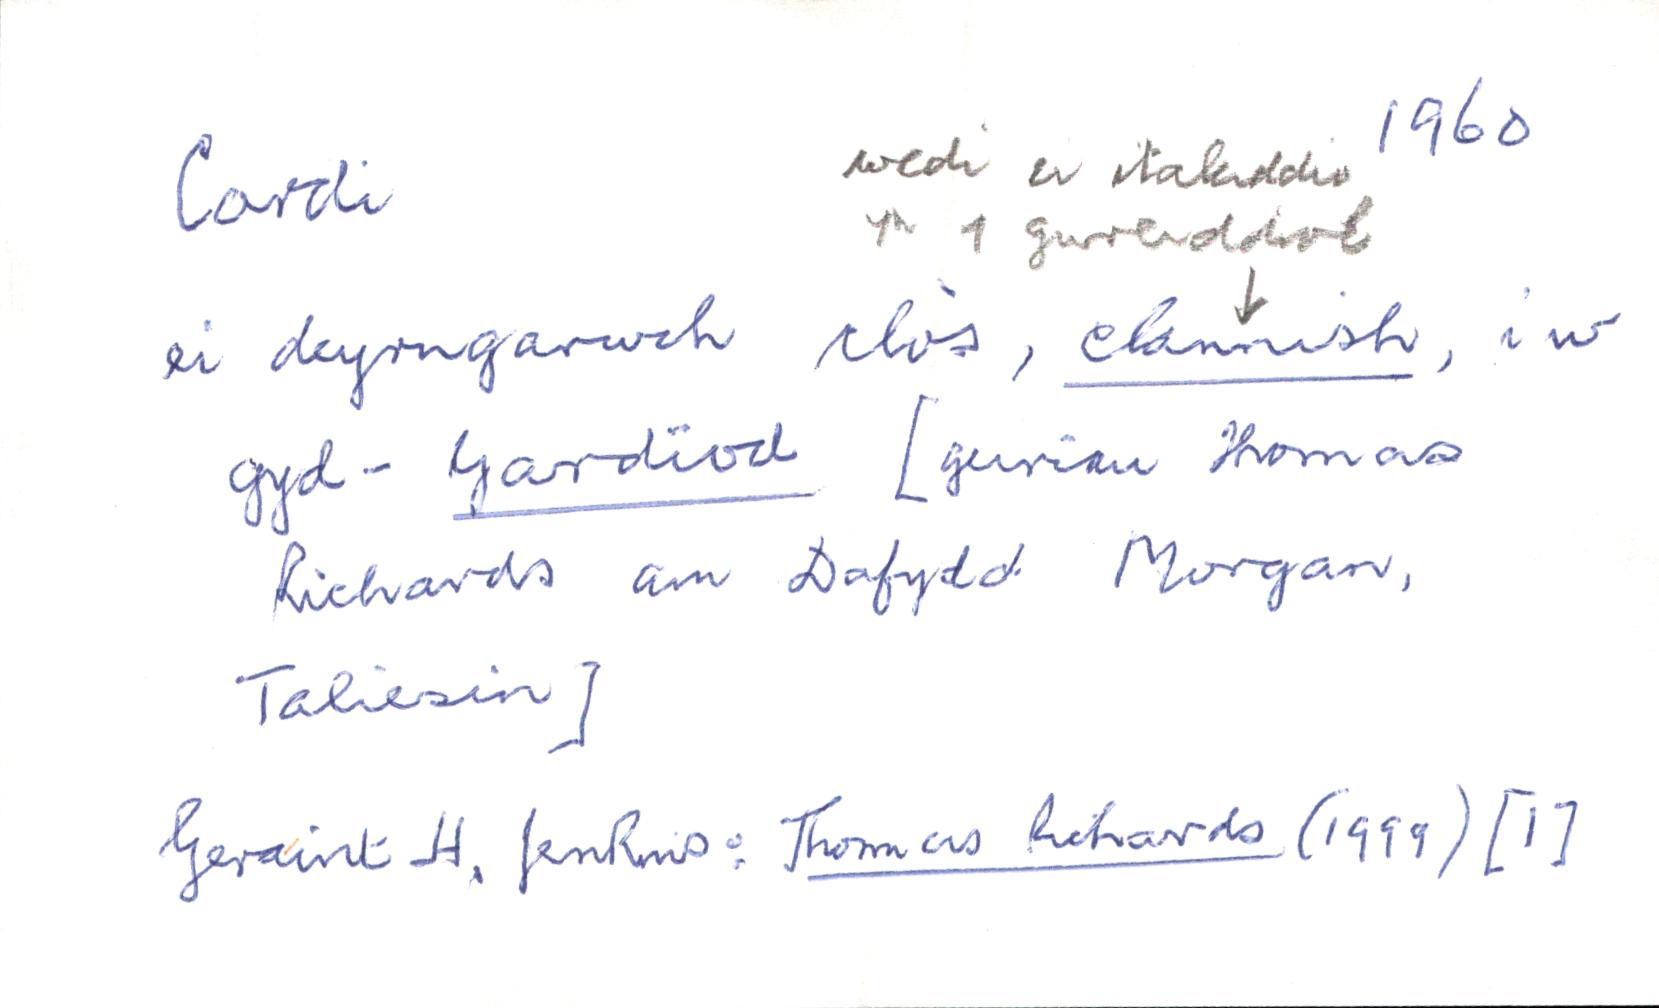 1960
Cardi
wedi ei italeiddio
yn y gwreiddiol
↓
ei deyrngarwch clòs, clannish, i'w
gyd-Gardïod [geiriau Thomas
Richards am Dafydd Morgan,
Taliesin]
Geraint H. Jenkins: Thomas Richards (1999) [1]